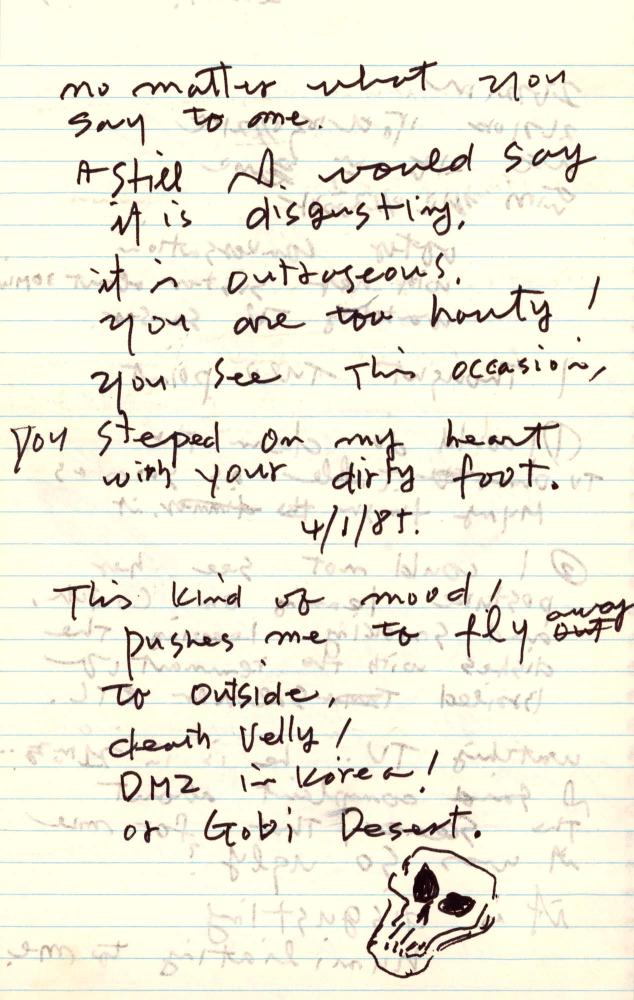 no matter what you
say to me.
I still I. would say
it is disgusting,
it is outrageous.
you are too houty!
you see This occasion,
you steped on my heart
with your dirty foot.
4/1/85.
This kind of mood!
pushes me to fly away
to outside,
death Velly!
DMZ in Korea!
or Gobi Desert.